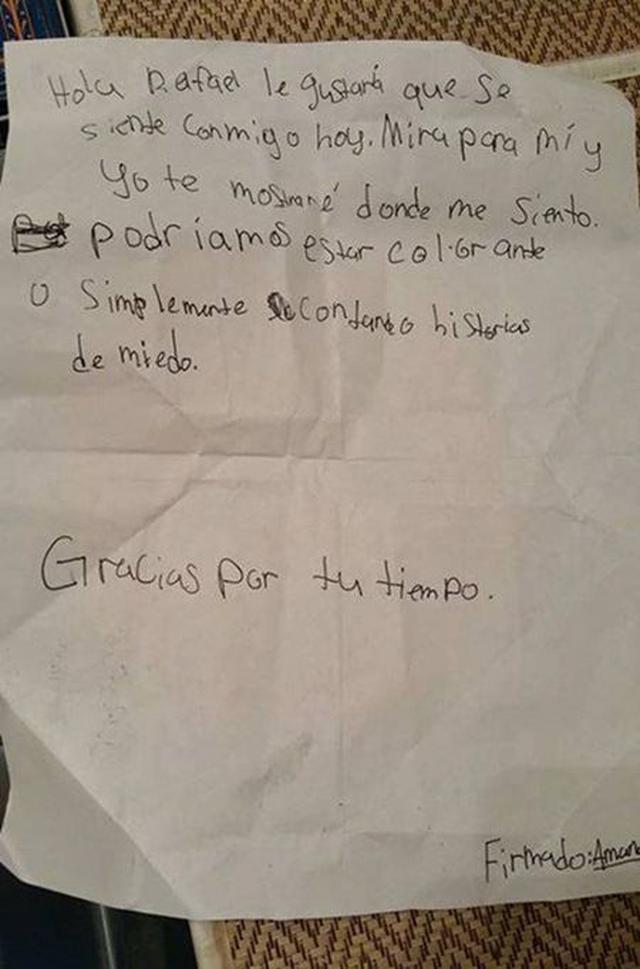 Hola Rafael le gustará que se
siente conmigo hoy. Mira para mí y
Yo te mostraré donde me siento.
podriamos estar colorante
o Simplemente contando historias
de miedo.
Gracias por tu tiempo.
Firmado:Aman